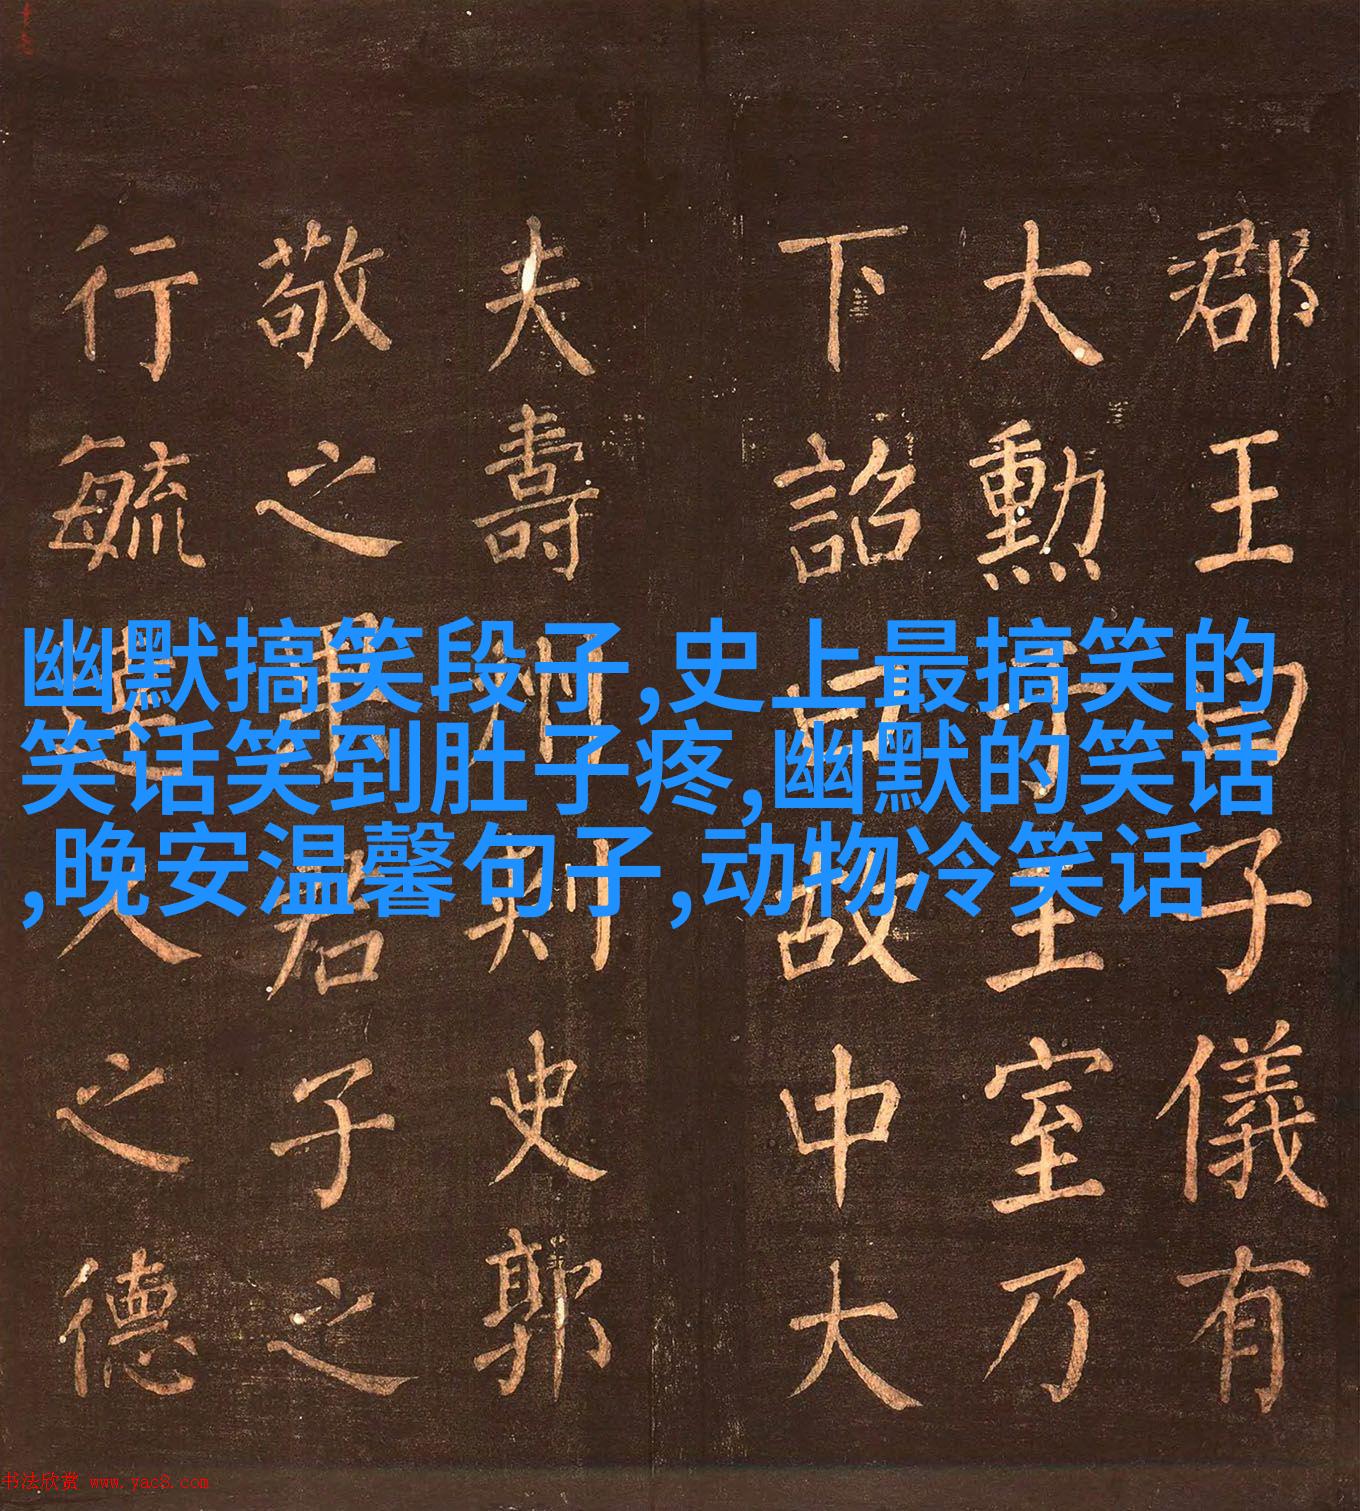 郡王曰子儀有
大勳于王室乃
下詔曰故中大
夫壽州刺史郭
敬之君子之
行毓人之德
幽默搞笑段子,史上最搞笑的
笑话笑到肚子疼,幽默的笑话
,晚安温馨句子,动物冷笑话
书法欣赏 www.yac8.com